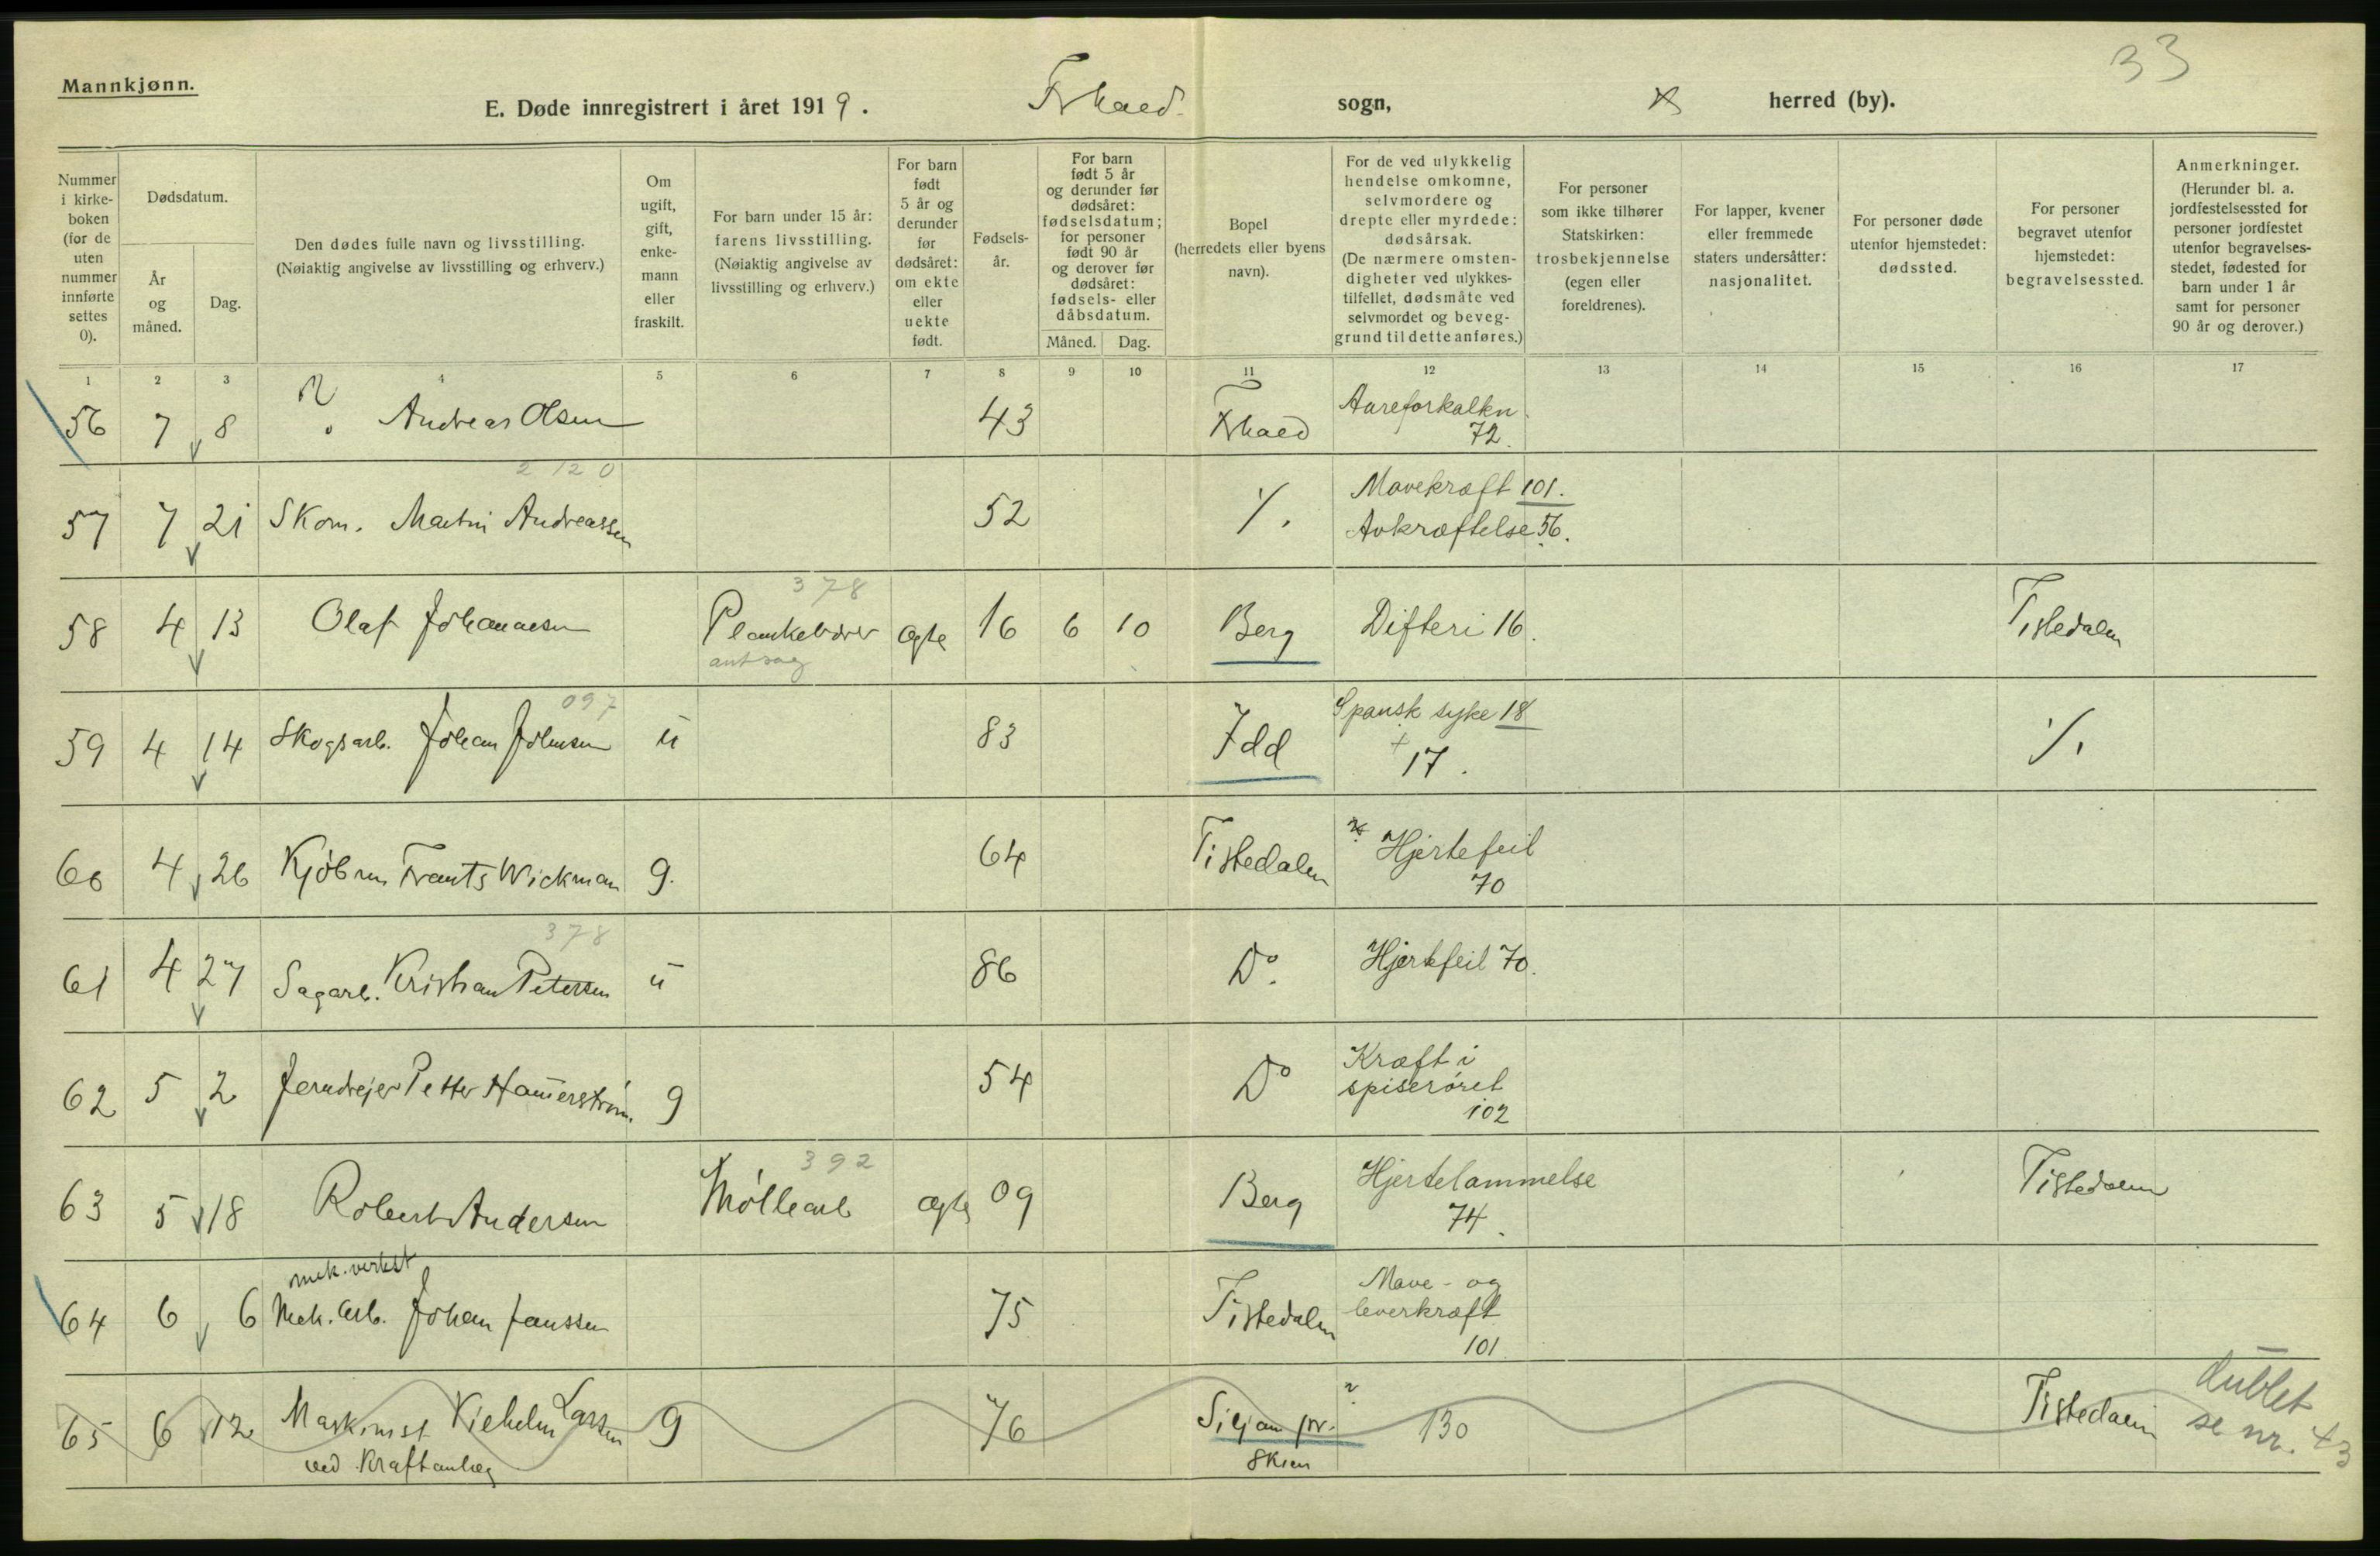 33
Mannkjønn.
E. Døde innregistrert i året 1919. Frhald sogn, herred (by).
Nummer i kirkeboken (for de uten nummer innførte settes 0).
Dødsdatum.
År og måned.
Dag.
Den dødes fulle navn og livsstilling.
(Nøiaktig angivelse av livsstilling og erhverv.)
Om ugift, gift, enkemann eller fraskilt.
For barn under 15 år: farens livsstilling. (Nøiaktig angivelse av livsstilling og erhverv.)
For barn født 5 år og derunder før dødsåret: om ekte eller uekte født.
Fødselsår.
For barn født 5 år og derunder før dødsåret: fødselsdatum; for personer født 90 år og derover før dødsåret: fødsels- eller dåbsdatum.
Måned. Dag.
Bopel (herredets eller byens navn).
For de ved ulykkelig hendelse omkomne, selvmordere og drepte eller myrdede: dødsårsak. (De nærmere omstendigheter ved ulykkestilfellet, dødsmåte ved selvmordet og beveggrund til dette anføres.)
For personer som ikke tilhører Statskirken: trosbekjennelse (egen eller foreldrenes).
For lapper, kvener eller fremmede staters undersåtter: nasjonalitet.
For personer døde utenfor hjemstedet: dødssted.
For personer begravet utenfor hjemstedet: begravelsessted.
Anmerkninger. (Herunder bl. a. jordfestelsessted for personer jordfestet utenfor begravelsesstedet, fødested for barn under 1 år samt for personer 90 år og derover.)
1 2 3 4 5 6 7 8 9 10 11 12 13 14 15 16 17
56 7 8 Andreas Olsen 43 Frhald Aareforkalkn. 72.
2 120
57 7 21 Skom. Martin Andreassen 52 Mavekræft 101.
Avkræftelse 56.
378
58 4 13 Olaf Johansen Plankebærer ægte 16 6 10 Berg Difteri 16. Tistedalen
ant sag
097
59 4 14 Skogsarb. Johan Johnsen u 83 Idd Spansk syke 18
+ 17.
60 4 26 Kjøbm Frants Wickman g. 64 Tistedalen Hjertefeil
70
378
61 4 27 Sagarb. Kristian Petersen u 86 Do. Hjertefeil 70.
62 5 2 Jerndrejer Petter Hammerstrøm. g 54 Do Kræft i
spiserøret
102
392
63 5 18 Robert Andersen Møllearb ægte 09 Berg Hjertelammelse Tistedalen
74.
mek. verkst
64 6 6 Mek. Arb. Johan Janssen 75 Tistedalen Mave- og
leverkræft
101
65 6 12 Maskinist Vilhelm Larsen g 76 Siljan pr. ? 130 Tistedalen dublet
ved Kraftanlæg Skien se nr. 43